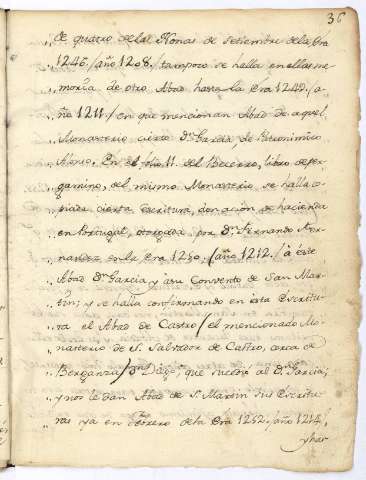 36
„ de quatro de las Nonas de Setiembre de la Era
„ 1246. / año 1208. / tampoco se halla en ellas me-
„ moria de otro Abad hasta la Era 1249. / a-
„ ño 1211. / en que mencionan Abad de aquel
„ Monasterio cierto Dn. Garcia, de Patronimico
„ Alonso. En el folio 11. del Becerro, libro de per-
„ gamino, del mismo Monasterio se halla co-
„ piada cierta Escritura, donacion de hacienda
„ en Portugal, otorgada por Dn. Fernando Fer-
„ nandez en la Era 1250. / año 1212. / â este
„ Abad Dn. Garcia y a su Convento de San Mar-
„ tin; y se halla confirmando en esta Escritu-
„ ra el Abad de Castro / el mencionado Mo-
„ nasterio de S. Salvador de Castro, cerca de
„ Berganza / Dn. Diego, que sucediò al Dn. Garcia;
„ y nos le dan Abad de S. Martin sus Escritu-
„ ras ya en Febrero de la Era 1252. / año 1214. /
y has